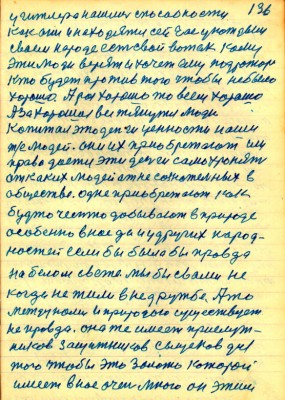 136
учителя нашли способности
как они находятся сей
своем народе есть свой вот так кому
эти люди верят и хочет ему
кто будет против того чтобы не было
хорошо. А раз хорошо то всем хорошо
А За хорошая вес тянутся люди
Копитал это деньги ценности нашли
те людей. они их приобретают им
право дасти эти деньги само хронять
от каких людей от не сознательных в
обществе. одне приобретают как
будто честно добивают в природе
особенно в ное да и у других народ-
ностей если бы была бы правда
на белом свете. мы бы с вами не
когда не жили в недружбе. А то
между нами и природого существует
не правда. она же имеет прислуж-
ников защитников сыщеков для
того чтобы это Золото которой
имеет в ное очен много он этими